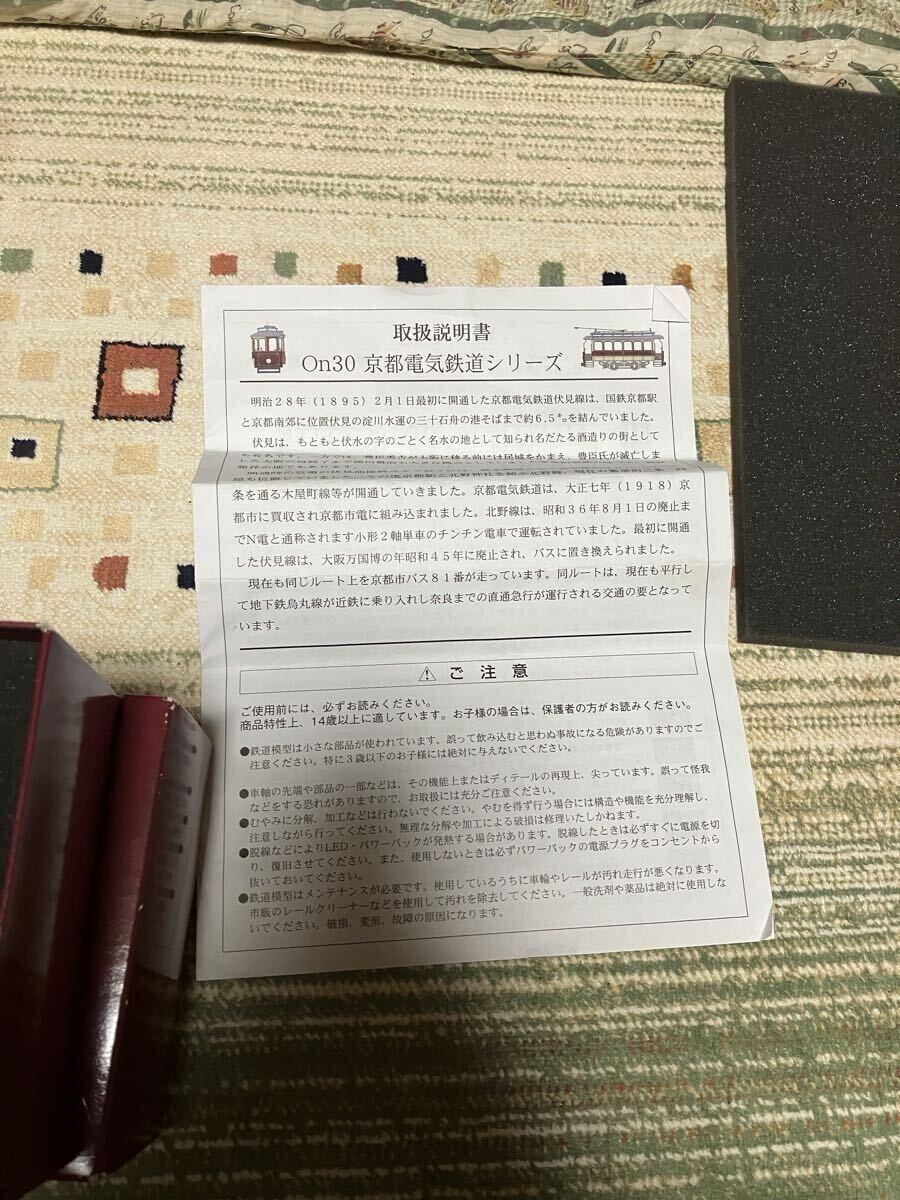 取扱説明書
On30 京都電気鉄道シリーズ
明治２８年（１８９５）２月１日最初に開通した京都電気鉄道伏見線は、国鉄京都駅
と京都南郊に位置伏見の淀川水運の三十石舟の港そばまで約６.５㌔を結んでいました。
伏見は、もともと伏水の字のごとく名水の地として知られ名だたる酒造りの街として
も有名です。
条を通る木屋町線等が開通していきました。京都電気鉄道は、大正七年（１９１８）京
都市に買収され京都市電に組み込まれました。北野線は、昭和３６年８月１日の廃止ま
でN電と通称されます小形２軸単車のチンチン電車で運転されていました。最初に開通
した伏見線は、大阪万国博の年昭和４５年に廃止され、バスに置き換えられました。
現在も同じルート上を京都市バス８１番が走っています。同ルートは、現在も平行し
て地下鉄烏丸線が近鉄に乗り入れし奈良までの直通急行が運行される交通の要となって
います。
⚠ ご 注 意
ご使用前には、必ずお読みください。
商品特性上、14歳以上に適しています。お子様の場合は、保護者の方がお読みください。
●鉄道模型は小さな部品が使われています。誤って飲み込むと思わぬ事故になる危険がありますのでご
注意ください。特に３歳以下のお子様には絶対に与えないでください。
●車軸の先端や部品の一部などは、その機能上またはディテールの再現上、尖っています。誤って怪我
などをする恐れがありますので、お取扱には充分ご注意ください。
●むやみに分解、加工などは行わないでください。やむを得ず行う場合には構造や機能を充分理解し、
注意しながら行ってください。無理な分解や加工による破損は修理いたしかねます。
●脱線などによりLED・パワーパックが発熱する場合があります。脱線したときは必ずすぐに電源を切
り、復旧させてください。また、使用しないときは必ずパワーパックの電源プラグをコンセントから
抜いておいてください。
●鉄道模型はメンテナンスが必要です。使用しているうちに車輪やレールが汚れ走行が悪くなります。
市販のレールクリーナーなどを使用して汚れを除去してください。一般洗剤や薬品は絶対に使用しな
いでください。破損、変形、故障の原因になります。